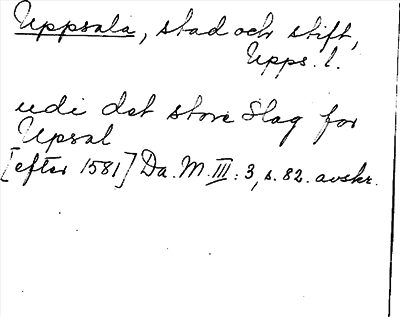 Uppsala, stad och stift,
Upps. l.
udi det store Slag for
Upsal
[efter 1581] Da. M. III: 3, s. 82. avskr.